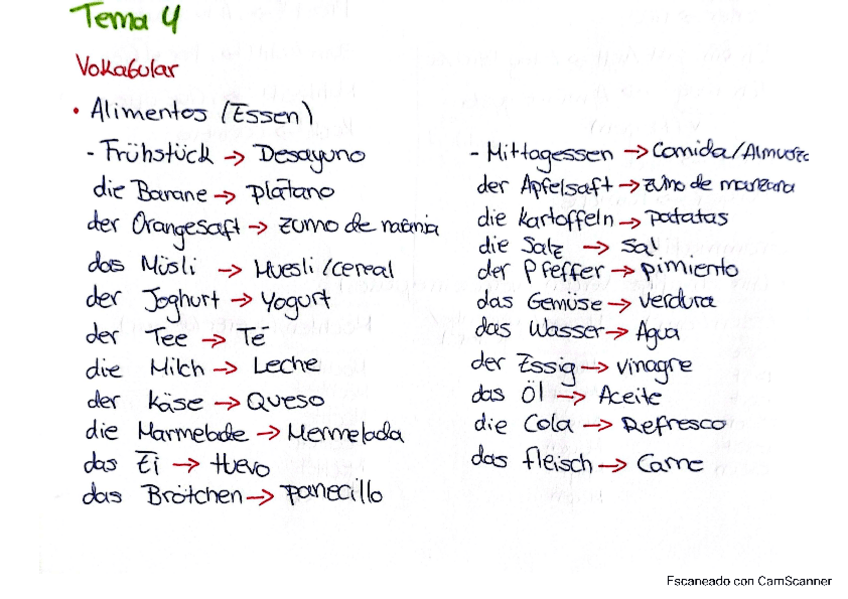 Tema 4
Vokabular
• Alimentos (Essen)
- Frühstück → Desayuno
die Banane → plátano
der Orangesaft → zumo de
das Müsli → Muesli/cereal
der Joghurt → Yogurt
der Tee → Té
die Milch → Leche
der Käse → Queso
die Marmelade → Mermelada
das Ei → Huevo
das Brötchen → panecillo
- Mittagessen → Comida/Almuerzo
der Apfelsaft → zumo de manzana
die Kartoffeln → patatas
die Salz → sal
der Pfeffer → pimiento
das Gemüse → verdura
das Wasser → Agua
der Essig → vinagre
das Öl → Aceite
die Cola → Refresco
das fleisch → Carne
Escaneado con CamScanner